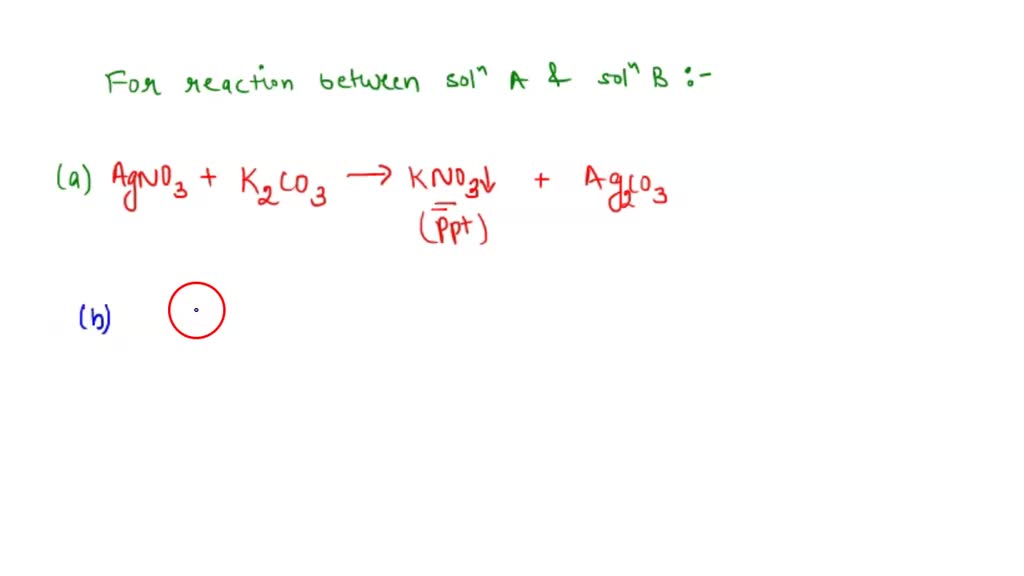 For reaction between solⁿ A & solⁿ B :-
(a) AgNO₃ + K₂CO₃ → KNO₃↓ + Ag₂CO₃
(Ppt)
(b)